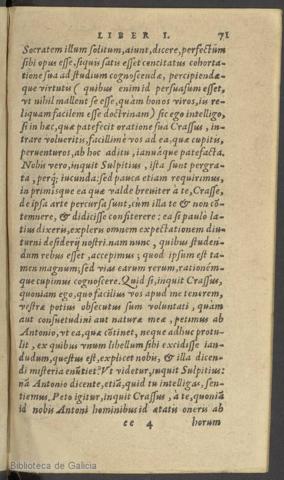 LIBER I. 71
Socratem illum solitum, aiunt, dicere, perfectũm
sibi opus esse, siquis satis esset cõncitatus cohorta-
tione sua ad studium cognoscendæ, percipiendæ-
que virtutis ( quibus enim id persuasum esset,
vt nihil mallent se esse, quàm bonos viros, iis re-
liquam facilem esse doctrinam) sic ego intelligo,
si in hæc, quæ patefecit oratione sua Crassus, in-
trare volueritis, facillimè vos ad ea, quæ cupitis,
peruenturos, ab hoc aditu, ianuáque patefacta.
Nobis verò, inquit Sulpitius, ista sunt pergra-
ta, perq́; iucunda: sed pauca etiam requirimus,
in primisque ea quæ valde breuiter à te, Crasse,
de ipsa arte percursa sunt, cùm illa te & non cõ-
temnere, & didicisse confiterere: ea si paulo la-
tius dixeris, expleris omnem expectationem diu-
turni desiderij nostri. nam nunc, quibus studen-
dum rebus esset, accepimus; quod ipsum est ta-
men magnum; sed vias earum rerum, rationém-
que cupimus cognoscere. Quid si, inquit Crassus,
quoniam ego, quo facilius vos apud me tenerem,
vestræ potius obsecutus sum voluntati, quàm
aut consuetudini aut naturæ meæ, petimus ab
Antonio, vt ea, quæ cõtinet, neque adhuc protu-
lit, ex quibus vnum libellum sibi excidisse ian-
dudum, questus est, explicet nobis, & illa dicen-
di misteria enũtiet? Vt videtur, inquit Sulpitius:
nã Antonio dicente, etiã, quid tu intelligas, sen-
tiemus. Peto igitur, inquit Crassus, à te, quoniã
id nobis Antoni hominibus id ætatis oneris ab
ee 4 horum
Biblioteca de Galicia